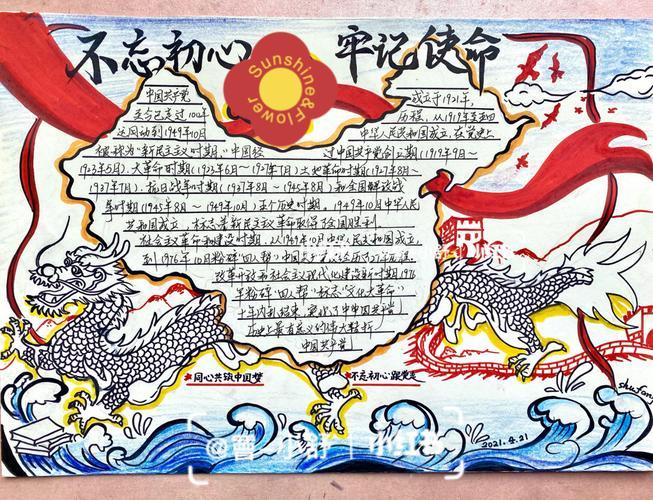 不忘初心 牢记使命
Sunshine&Flower
中国共产党 成立于1921年,
至今已走过100年 历程, 从1919年至五四
运动到1949年10月 中华人民共和国成立, 在党史上
被称为"新民主义时期," 中国 过中国共产党创立期(1919年9月~
1923年5月), 大革命时期(1923年6月~1927年7月)土地革命时期(1927年8月~
1937年7月), 抗日战争时期(1937年8月~1945年8月)和全国解放战
争时期(1945年8月~1949年10月)五个历史时期, 1949年10月中华人民
共和国成立, 标志着新民主义革命取得了全国胜利
社会主义革命和建设时期, 从1949年10月中华人民共和国成立,
到1976年10月粉碎"四人帮"中国
改革开放和社会主义现代化建设新时期, 1976
年粉碎"四人帮"标志"文化大革命"
十年内乱结束,
历史上最有意义的伟大转折
中国共产党
同心共筑中国梦
不忘初心跟党走
shufang
2021.4.21
小红书